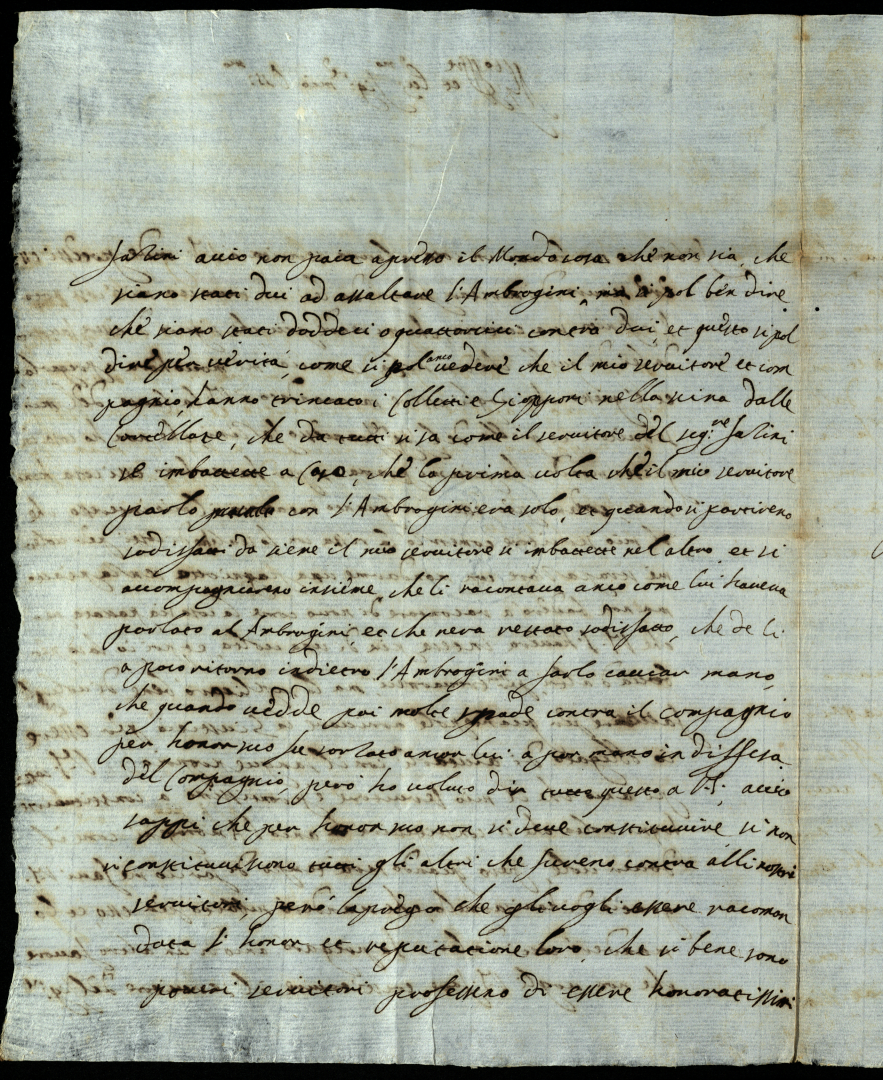 Salini acciò non paia apresso il Mondo cosa che non sia, che
siano stati dui ad assaltare l'Ambrogini, si pol ben dire
che siano stati doddeci o quattordici contra dui, et questo si pol
dire per verità, come si pol anco vedere che il mio servitore et com
pagnio, hanno trincato i Colletti e Gipponi nella vina dalle
Cortellate, che da tutti si sa come il servitore del sig.re Salini
se imbattette a Caso, che la prima volta che il mio servitore
parlò con l'Ambrogini era solo, et quando si partireno
sodisfatti da viene il mio servitore si imbattette nel altro et si
accompagniareno insieme, che li racontava anco come lui haveva
parlato al Ambrogini, et che nera restato sodisfatto, che de li
a poco ritorno indietro l'Ambrogini a farlo cacciar mano,
che quando vedde poi molte spade contra il compagnio
per honor suo fu sorzato ancor lui a por mano in diffesa
del Compagnio, però ho voluto dir tutto questo a V.S. acciò
sappi che per honor suo non si deve constituire, si non
si constituissono tutti gli altri che fureno contra alli nostri
servitori, però la prego che gli vogli essere racoman
data l'honor et reputatione loro, che si bene sono
poveri servitori professeno di essere honoratissimi